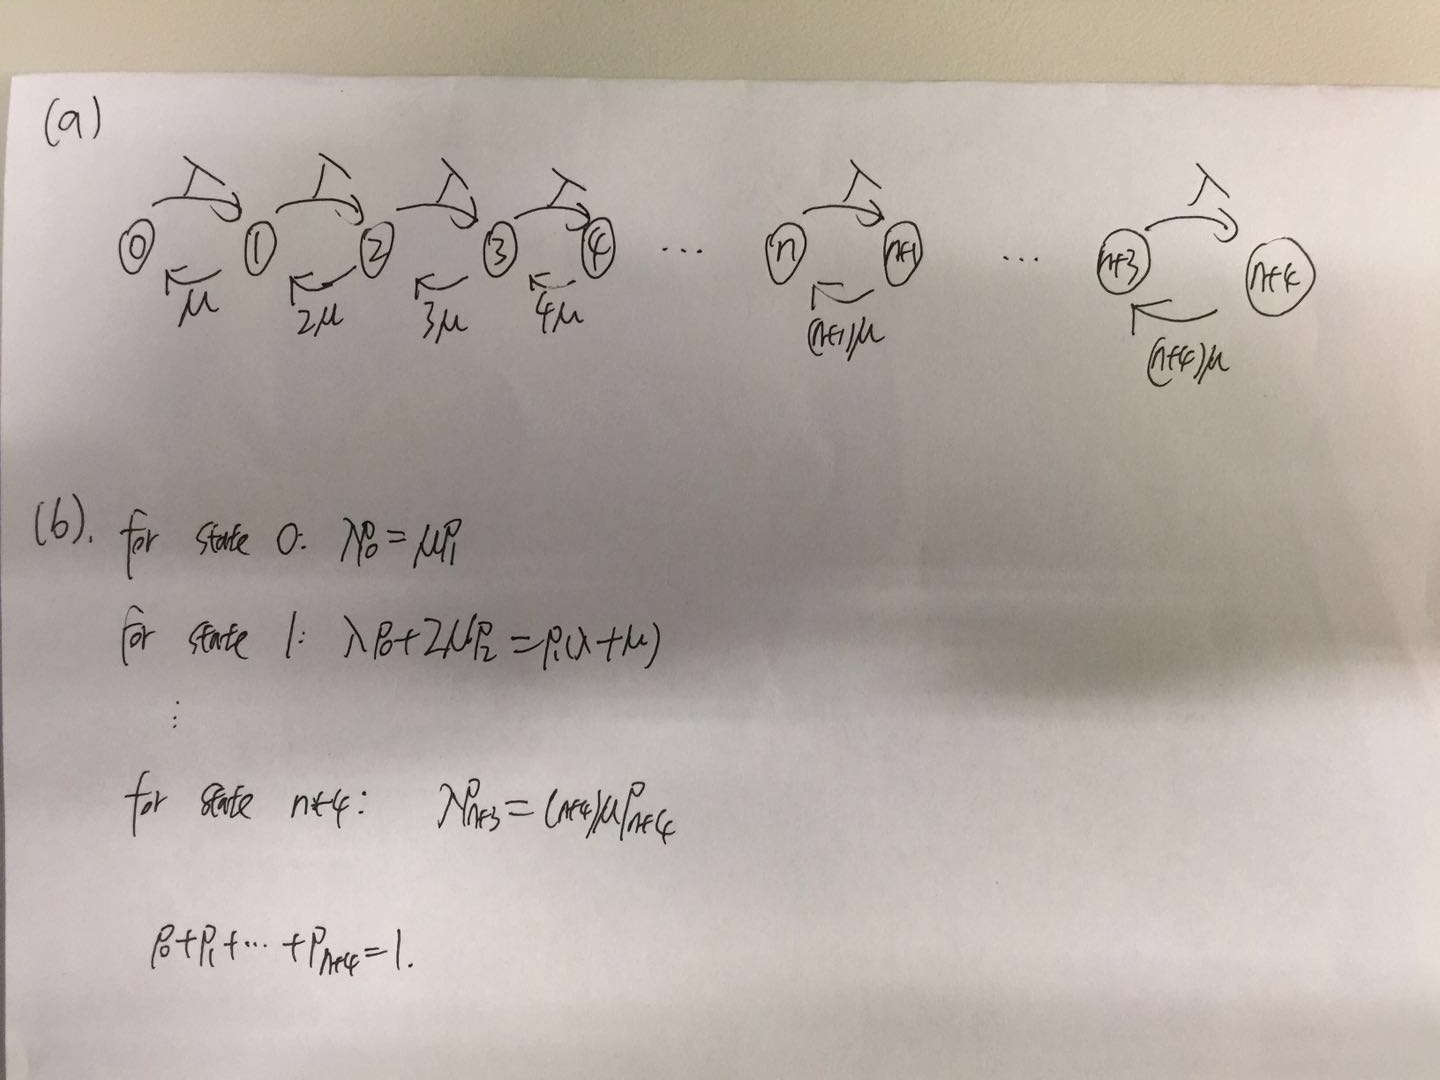 (a)
λ λ λ λ λ λ
0 1 2 3 4 ... n n+1 ... n+3 n+4
μ 2μ 3μ 4μ (n+1)μ (n+4)μ
(b). for state 0: λP₀ = μP₁
for state 1: λP₀+2μP₂ = P₁(λ+μ)
⋮
for state n+4: λPₙ₊₃ = (n+4)μPₙ₊₄
P₀+P₁+⋯+Pₙ₊₄=1.